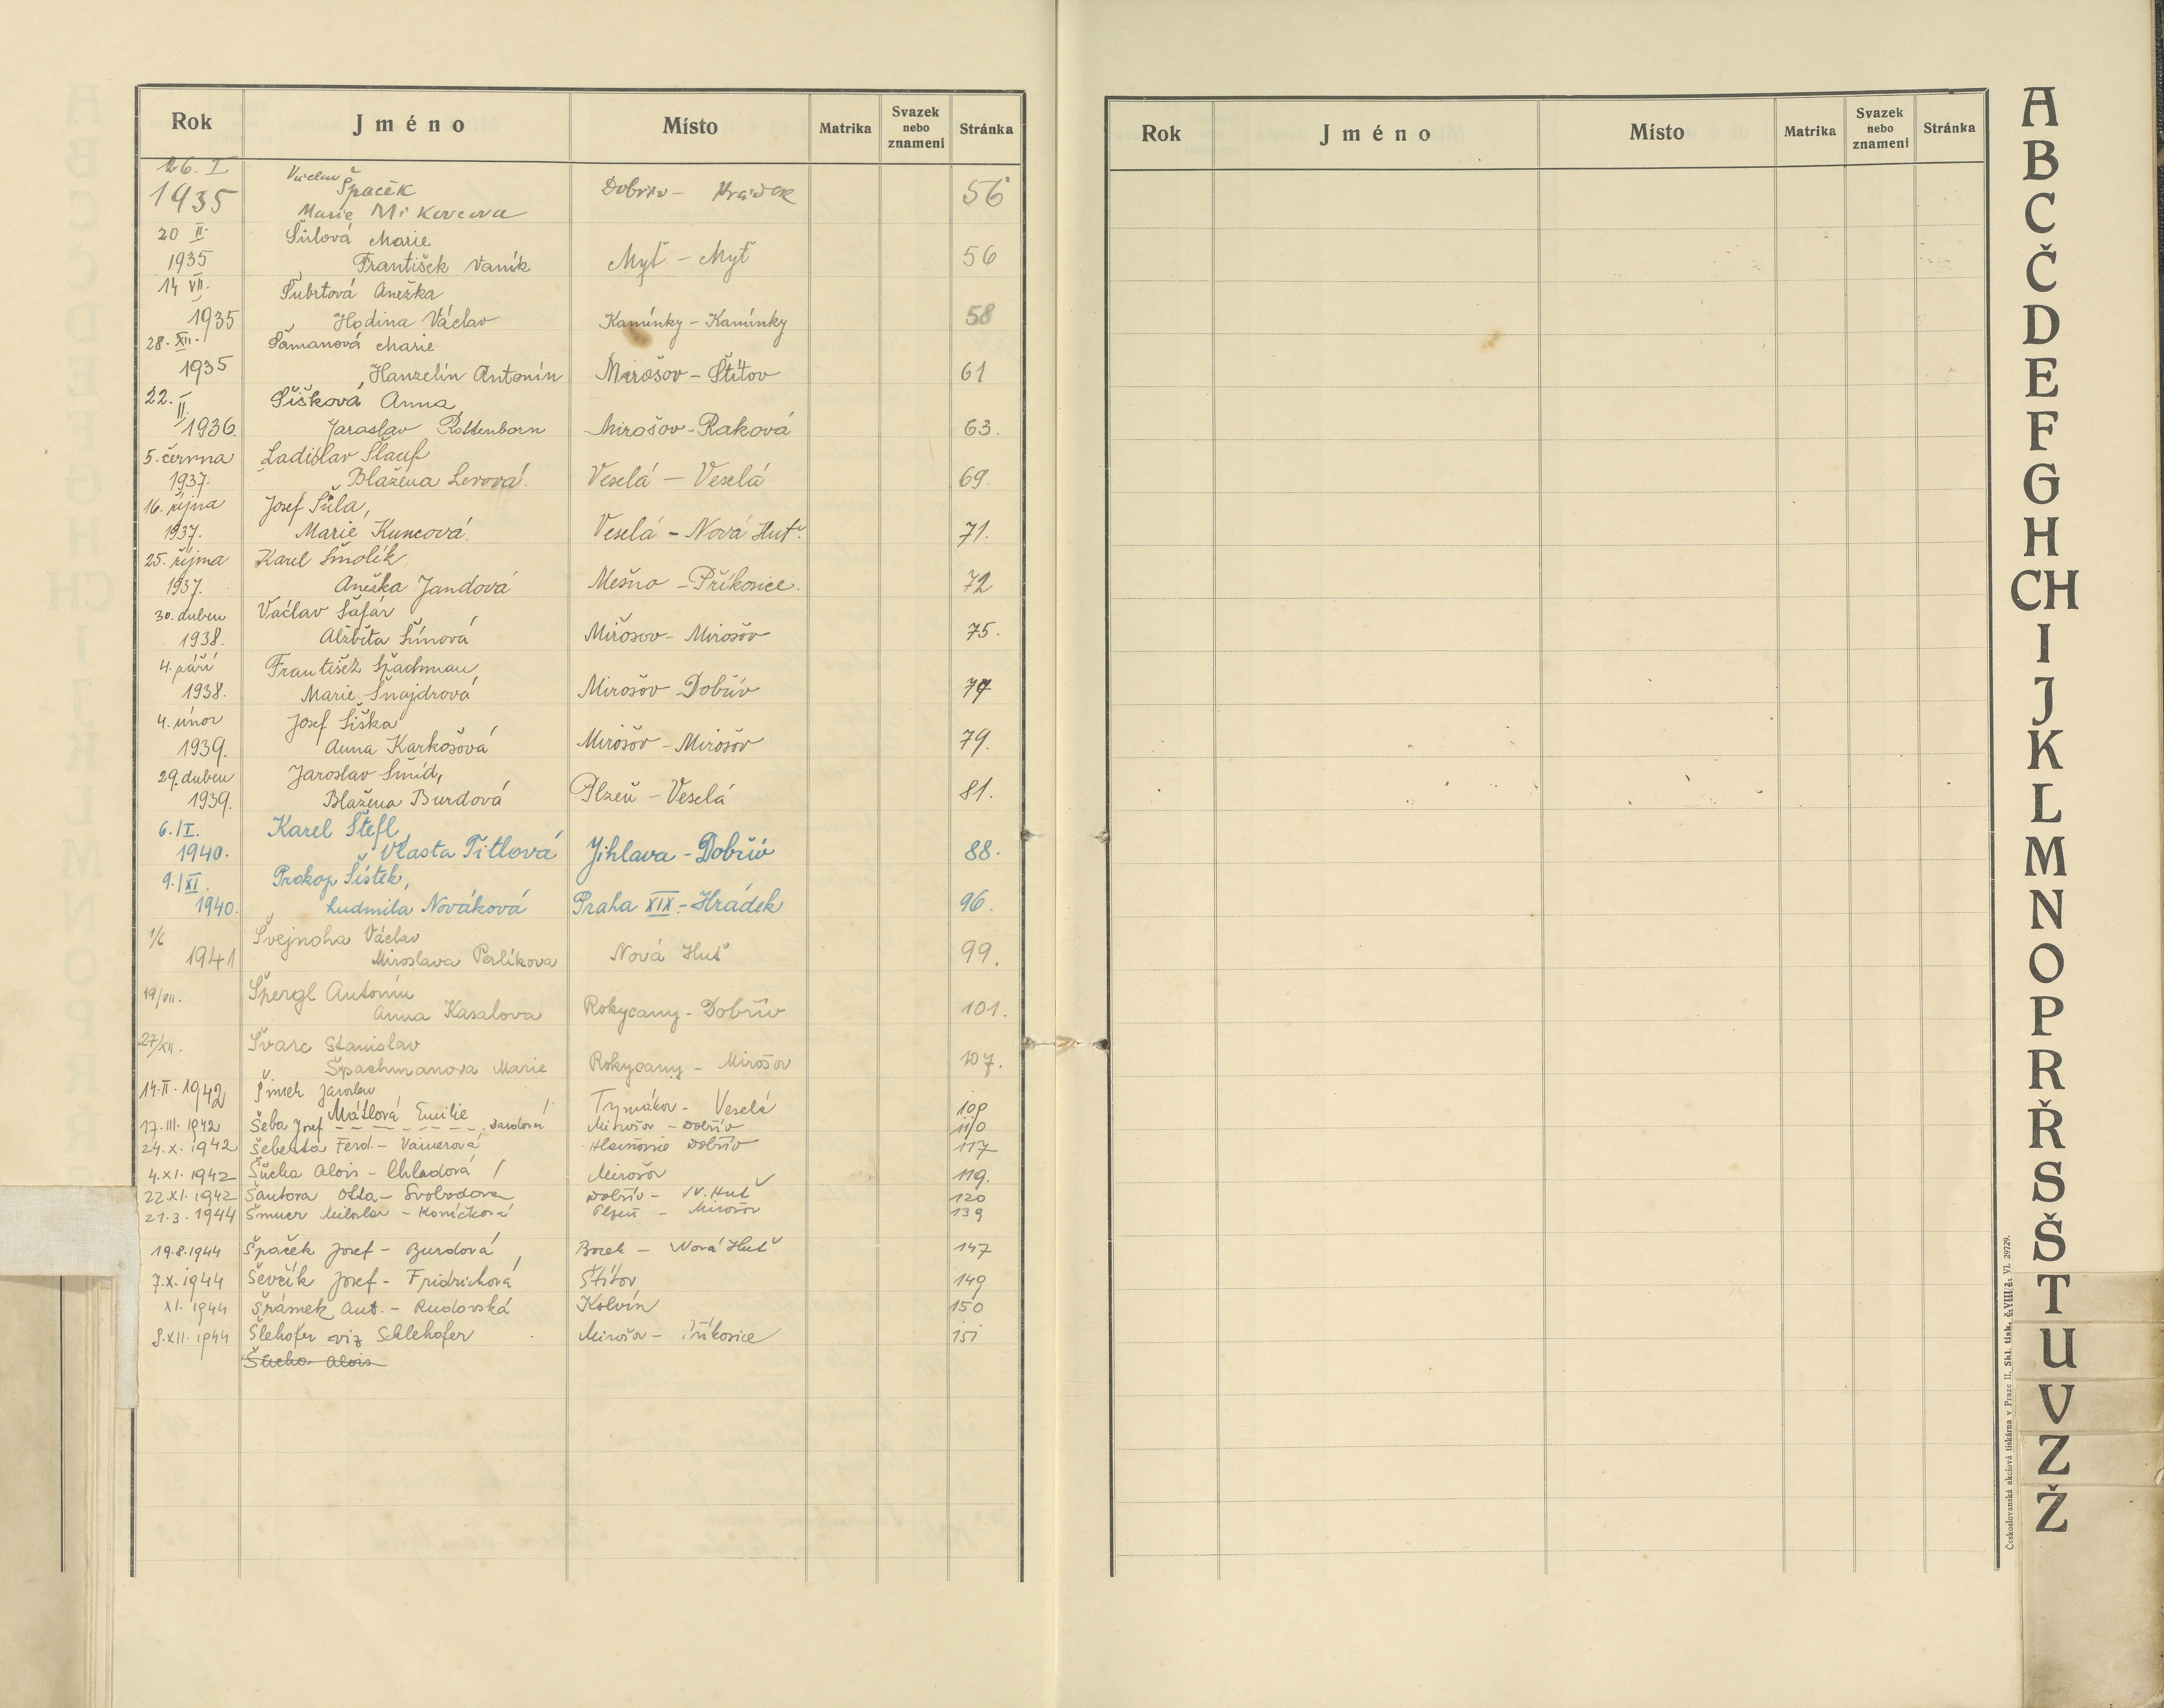 Rok Jméno Místo Matrika Svazek nebo znamení Stránka
26. I Václav
1935 Špaček Dobřív – Hrádek 56
Marie Mikovcova
20 II. Šůlová Marie
1935 František Vaník Myť – Myť 56
14 VII. Šubrtová Anežka
1935 Hodina Václav Kamínky – Kamínky 58
28. XII. Šamanová Marie
1935 Hanzelín Antonín Mirošov – Štítov 61
22. II. Šišková Anna
1936. Jaroslav Rottenborn Mirošov – Raková 63.
5. června Ladislav Šlauf
1937. Blažena Levová. Veselá – Veselá 69.
16. října Josef Šůla,
1937. Marie Kuncová. Veselá – Nová Huť. 71.
25. října Karel Šmolík
1937. Anežka Jandová Mešno – Příkosice. 72
30. duben Václav Šafář
1938. Alžběta Šímová Mirošov – Mirošov 75.
4. září František Špachman
1938. Marie Šnajdrová Mirošov – Dobřív 77
4. únor Josef Šiška
1939. Anna Karkošová Mirošov – Mirošov 79.
29. duben Jaroslav Šmíd,
1939. Blažena Burdová Plzeň – Veselá 81.
6./I. Karel Štefl,
1940. Vlasta Titlová Jihlava – Dobřív 88.
9./XI. Prokop Šístek,
1940. Ludmila Nováková Praha XIX. – Hrádek 96.
1/6 Švejnoha Václav
1941 Miroslava Perlíkova Nová Huť 99.
19/VII. Špergl Antonín
Anna Kasalova Rokycany – Dobřív 101.
27/XII. Švarc Stanislav
Špachmanova Marie Rokycany – Mirošov 107.
14. II. 1942 Šimek Jaroslav
Mátlová Emilie Tymákov – Veselá 109
17. III. 1942 Šeba Josef – – – – – – Mirošov – Dobřív 110
24. X. 1942 Šebesta Ferd. – Dobřív 117
4. XI. 1942 Šůcha Alois – Chladová Mirošov 119.
22. XI. 1942 Šantora Otta – Svobodova Dobřív – N. Huť 120
21. 3. 1944 Miloslav – Koníčková Plzeň – Mirošov 139
19. 8. 1944 Špaček Josef – Burdová Borek – Nová Huť 147
7. X. 1944 Ševčík Josef – Fridrichová Štítov 149
XI. 1944 Šrámek Ant. – Rudovská Kolvín 150
8. XII. 1944 Šlehofer viz Schlehofer Mirošov – Příkosice 151
Šůcha Alois
Rok Jméno Místo Matrika Svazek nebo znamení Stránka
A
B
C
Č
D
E
F
G
H
CH
I
J
K
L
M
N
O
P
R
Ř
S
Š
T
U
V
Z
Ž
Československá akciová tiskárna v Praze II. Skl. tisk. č. VIII/2. VI. 29729.